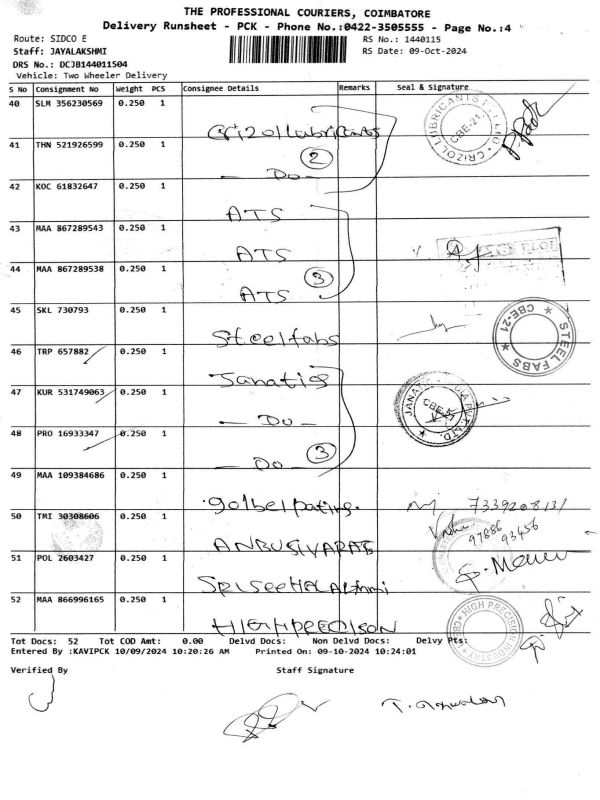 THE PROFESSIONAL COURIERS, COIMBATORE
Delivery Runsheet - PCK - Phone No.:0422-3505555 - Page No.:4
Route: SIDCO E
RS No.: 1440115
Staff: JAYALAKSHMI
RS Date: 09-Oct-2024
DRS No.: DCJB144011504
Vehicle: Two Wheeler Delivery
S No Consignment No Weight PCS Consignee Details Remarks Seal & Signature
40 SLM 356230569 0.250 1 Crizol Lubricants
CRIZOL LUBRICANTS CBE-21
41 THN 521926599 0.250 1 - Do - 2
42 KOC 61832647 0.250 1 ATS
43 MAA 867289543 0.250 1 ATS
44 MAA 867289538 0.250 1 ATS 3
45 SKL 730793 0.250 1 Steelfabs
STEEL FABS CBE-21
46 TRP 657882 0.250 1 Janatics
47 KUR 531749063 0.250 1 - Do -
CBE-21
48 PRO 16933347 0.250 1 - Do - 3
49 MAA 109384686 0.250 1
50 TMI 30308606 0.250 1
97886
93456
51 POL 2603427 0.250 1
52 MAA 866996165 0.250 1 HIGH PRECISON
HIGH PRECISION INDUSTRY
Tot Docs: 52 Tot COD Amt: 0.00 Delvd Docs: Non Delvd Docs: Delvy Pts:
Entered By :KAVIPCK 10/09/2024 10:20:26 AM Printed On: 09-10-2024 10:24:01
Verified By Staff Signature